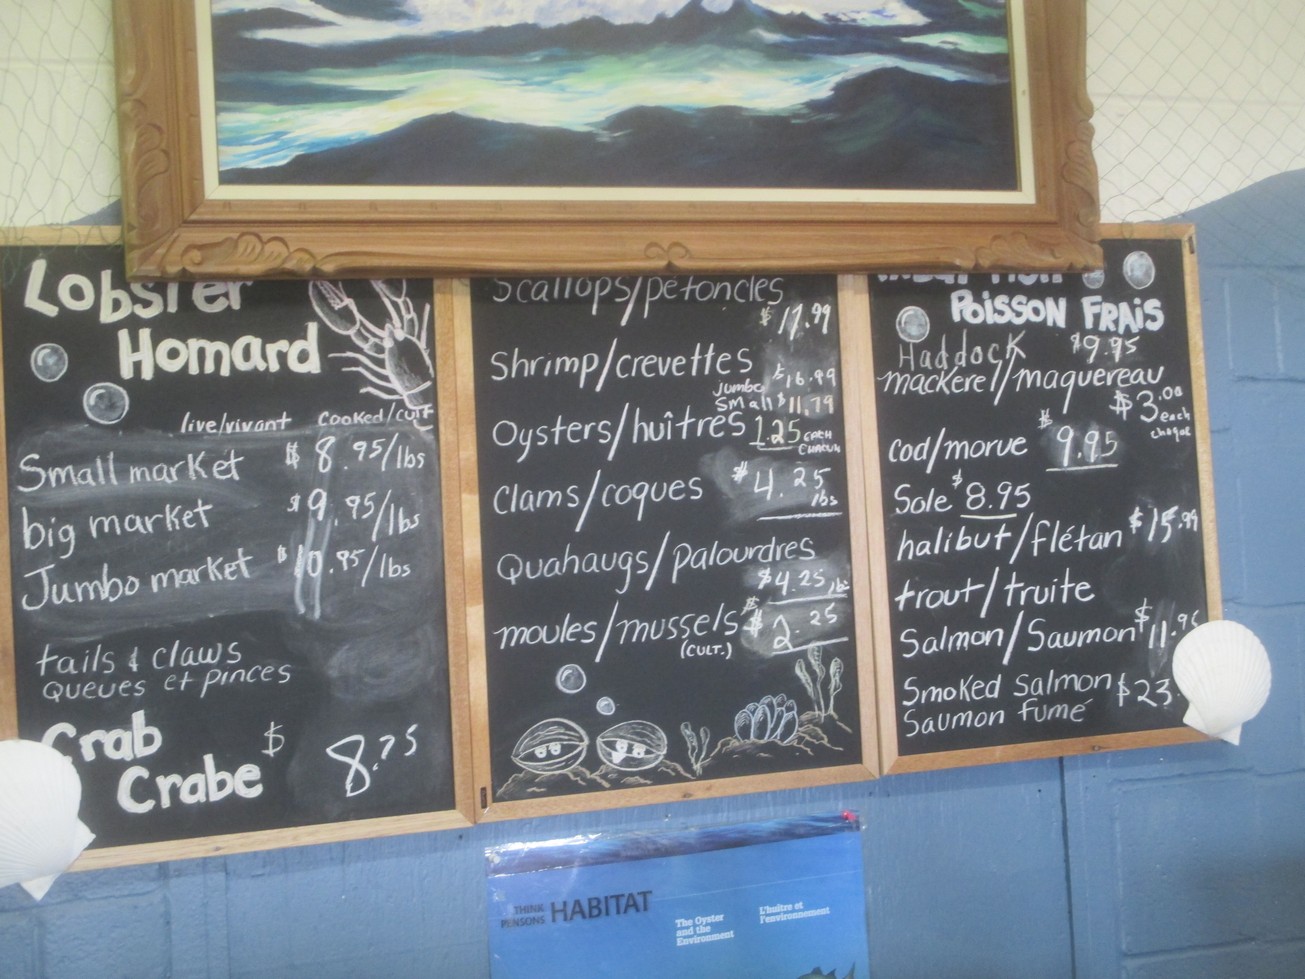 Lobster
Homard
live/vivant cooked/cuit
Small market $8.95/lbs
big market $9.95/lbs
Jumbo market $10.95/lbs
tails & claws
queues et pinces
Crab $
Crabe 8.75
Scallops/pétoncles
$17.99
Shrimp/crevettes
jumbo $16.99
small $11.79
Oysters/huîtres 1.25 EACH
CHACUN
Clams/coques $4.25
lbs
Quahaugs/palourdres
$4.25 lbs
moules/mussels $2.25
(CULT.)
Poisson Frais
Haddock $9.95
mackerel/maquereau
$3.00
each
chaque
cod/morue $9.95
Sole $8.95
halibut/flétan $15.99
trout/truite
Salmon/Saumon $11.9
Smoked Salmon $23.
Saumon fumé
THINK HABITAT
PENSONS
The Oyster
and the
Environment
L'huître et
l'environnement